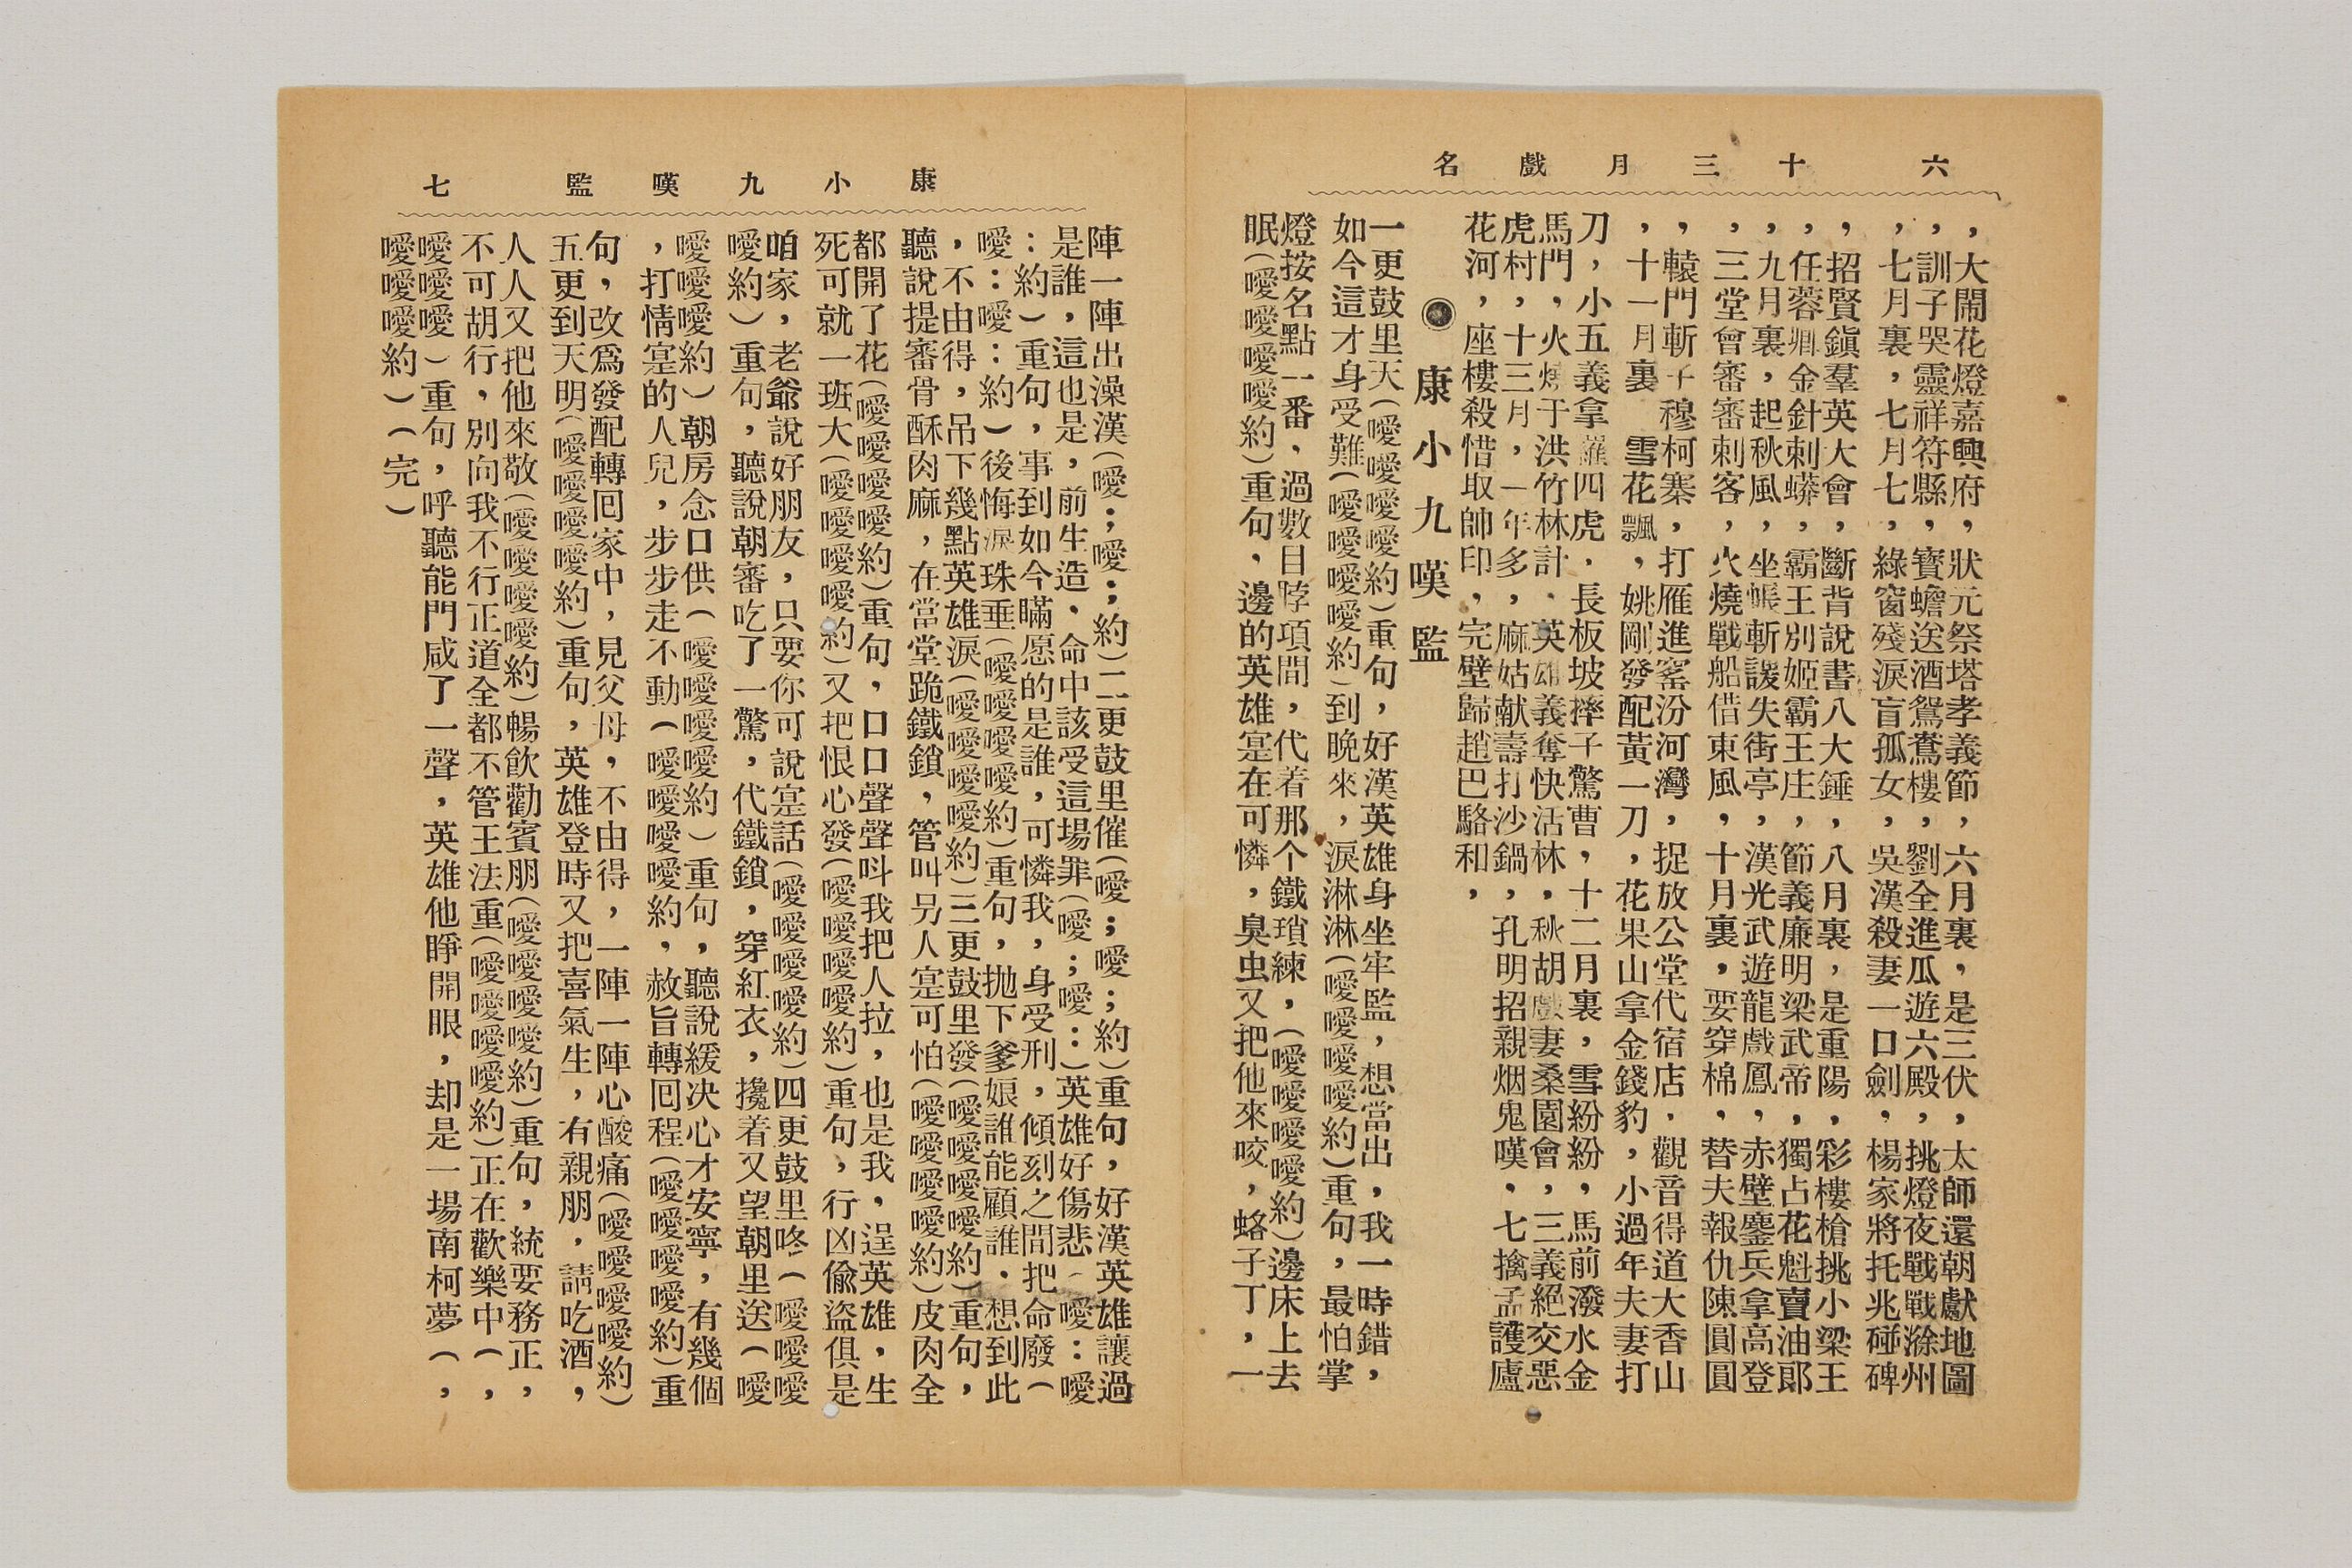 六 十三月戲名
，大鬧花燈嘉興府，狀元祭塔孝義節，六月裏，是三伏，太師還朝獻地圖
，訓子哭靈祥符縣，寳蟾送酒鴛鴦樓，劉全進瓜遊六殿，挑燈夜戰戰滁州
，七月裏，七月七，綠窗殘淚盲孤女，吳漢殺妻一口劍，楊家將托兆碰碑
，招賢鎭羣英大會，斷背說書八大錘，八月裏，是重陽，彩樓槍挑小梁王
，任蓉卿金針刺蟒，霸王別姬霸王庄，節義廉明梁武帝，獨占花魁賣油郎
，九月裏，起秋風，坐帳斬謖失街亭，漢光武遊龍戲鳳，赤壁鏖兵拿高登
，三堂會審審刺客，火燒戰船借東風，十月裏，要穿棉，替夫報仇陳圓圓
，轅門斬子穆柯寨，打雁進窰汾河灣，捉放公堂代宿店，觀音得道大香山
，十一月裏 雪花飄，姚剛發配黃一刀，花果山拿金錢豹，小過年夫妻打
刀，小五義拿羅四虎，長板坡摔子驚曹，十二月裏，雪紛紛，馬前潑水金
馬門，火燒于洪竹林計．英雄義奪快活林，秋胡戲妻桑園會，三義絕交惡
虎村，十三月，一年多，麻姑献壽打沙鍋，孔明招親烟鬼嘆，七擒孟護廬
花河，座樓殺惜取帥印，完壁歸趙巴駱和，
◉康小九嘆監
一更鼓里天（噯噯噯噯約）重句，好漢英雄身坐牢監，想當出，我一時錯，
如今這才身受難（噯噯噯噯約）到晚來，淚淋淋（噯噯噯噯約）重句，最怕掌
燈按名點一番，過數目脖項間，代着那个鐵瑣練，（噯噯噯噯約）邊床上去
眠（噯噯噯噯約）重句，邊的英雄寔在可憐，臭虫又把他來咬，蛒子丁，一
康小九嘆監 七
陣一陣出澡漢（噯；噯；約）二更鼓里催（噯；噯；約）重句，好漢英雄讓過
是誰，這也是，前生造，命中該受這場罪（噯；噯：）英雄好傷悲（噯：噯
：約）重句，事到如今瞞愿的是誰，可憐我，身受刑，傾刻之間把命廢（
噯：噯：約）後悔淚珠垂（噯噯噯噯約）重句，抛下爹娘誰能顧誰．想到此
，不由得，吊下幾點英雄淚（噯噯噯噯約）三更鼓里發（噯噯噯噯約）重句，
聽說提審骨酥肉麻，在當堂跪鐵鎖，管叫另人寔可怕（噯噯噯噯約）皮肉全
都開了花（噯噯噯噯約）重句，口口聲聲呌我把人拉，也是我，逞英雄，生
死可就一班大（噯噯噯噯約）又把恨心發（噯噯噯噯約）重句，行凶偸盜俱是
咱家，老爺說好朋友，只要你可說寔話（噯噯噯噯約）四更鼓里咚（噯噯噯
噯約）重句，聽說朝審吃了一驚，代鐵鎖，穿紅衣，攙着又望朝里送（噯
噯噯噯約）朝房念口供（噯噯噯噯約）重句，聽說緩决心才安寧，有幾個
，打情寔的人兒，步步走不動（噯噯噯噯約，赦旨轉囘程（噯噯噯噯約）重
句，改爲發配轉囘家中，見父母，不由得，一陣一陣心酸痛（噯噯噯噯約）
五更到天明（噯噯噯噯約）重句，英雄登時又把喜氣生，有親朋，請吃酒，
人人又把他來敬（噯噯噯噯約）暢飮勸賓朋（噯噯噯噯約）重句，統要務正，
不可胡行，別向我不行正道全都不管王法重（噯噯噯噯約）正在歡樂中（，
噯噯噯）重句，呼聽能門咸了一聲，英雄他睜開眼，却是一場南柯夢（，
噯噯噯約）（完）